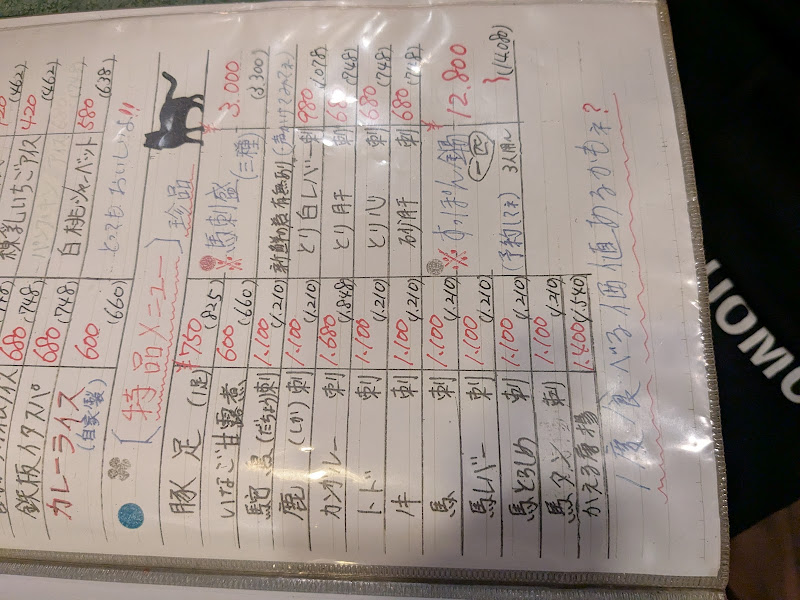 練乳いちごアイス 420 (462)
鉄板イタスパ 680 (748)
カレーライス 680 (748)
白桃シャーベット 580 (638)
(自家製) 600 (660)
とってもおいしいよ!!
[特品メニュー] 珍品
豚足 (1足) ¥750 (825)
※馬刺盛 (三種) ¥3.000 (3.300)
いなご甘露煮 600 (660)
駝鳥(だちょう)刺 1.100 (1.210)
新鮮な為有無あり(声かけてみてネ)
鹿(しか)刺 1.100 (1.210)
とり白レバー刺 980 (1.078)
カンガルー刺 1.680 (1.848)
とり肝刺 680 (748)
トド刺 1.100 (1.210)
とり心刺 680 (748)
牛刺 1.100 (1.210)
砂肝刺 680 (748)
馬刺 1.100 (1.210)
※すっぽん鍋 一匹 ¥12.800 (14.080)
馬レバー刺 1.100 (1.210)
(予約してネ) 3人用〜
馬とろしめ刺 1.100 (1.210)
馬タン刺 1.100 (1.210)
かえる唐揚 1.400 (1.540)
1度食べる価値あるかもネ?
UOMO